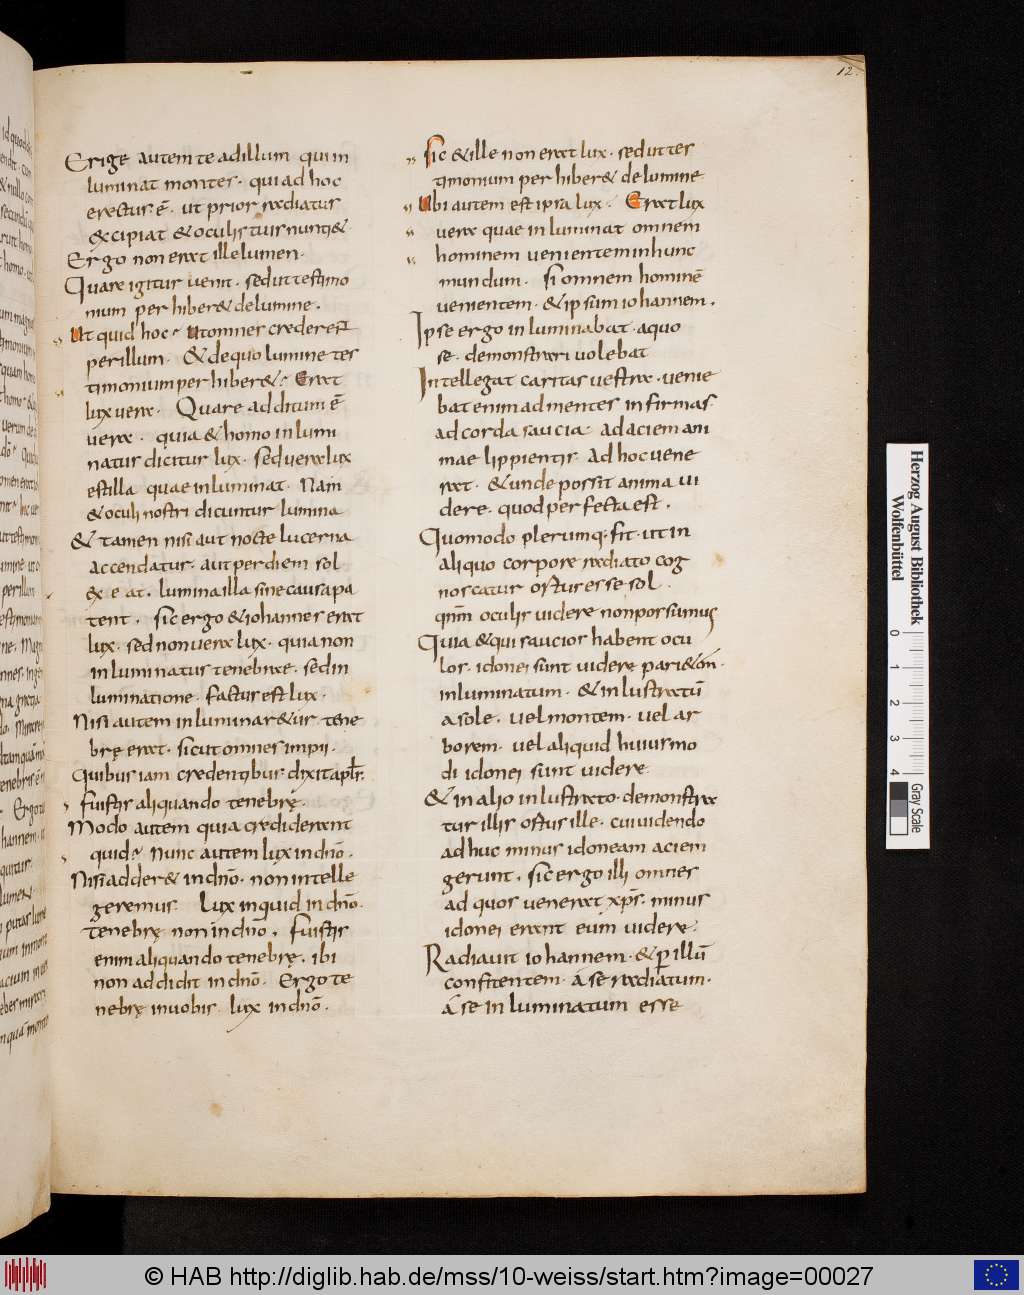 12.
Erige autem te ad illum qui in
luminat montes. qui ad hoc
erectus ē. ut prior radiatus
excipiat & oculis tuis nunti&.
Ergo non erat ille lumen.
Quare igitur uenit. sed ut testimo
nium per hiber& de lumine.
Ut quid hoc? Ut omnes crederent
per illum. Et de quo lumine tes
timonium per hiber&? Erat
lux uera. Quare additum ē
uera. quia & homo inlumi
natus dicitur lux. sed uera lux
est illa quae inluminat. Nam
& oculi nostri dicuntur lumina
& tamen nisi aut nocte lucerna
accendatur. aut per diem sol
exeat. lumina illa sine causa pa
tent. sic ergo & iohannes erat
lux. sed non uera lux. quia non
inluminatus tenebrae. sed in
luminatione factus est lux.
Nisi autem inluminar&ur tene
brę erat. sicut omnes impii.
Quibus iam credentibus dixit apl's.
fuistis aliquando tenebrę.
Modo autem quia crediderant
quid? Nunc autem lux in dño.
Nisi adder& in dño. non intelle
geremus. Lux inquid in dño.
tenebrę non in dño. fuistis
enim aliquando tenebrę. ibi
non addidit in dño. Ergo te
nebrę in uobis. lux in dño.
Sic & ille non erat lux. sed ut tes
timonium per hiber& de lumine
Ubi autem est ipsa lux. Erat lux
uera quae inluminat omnem
hominem uenientem in hunc
mundum. si omnem hominē
uenientem. & ipsum iohannem.
Ipse ergo inluminabat. a quo
se. demonstrari uolebat
Intellegat caritas uestra. uenie
bat enim ad mentes infirmas
ad corda saucia. ad aciem ani
mae lippientis. Ad hoc uene
rat. & unde possit anima ui
dere. quod perfecta est.
Quomodo plerumq; fit. ut in
aliquo corpore radiato cog
noscatur ostus esse sol.
qnm̄ oculis uidere non possumus
Quia & qui saucios habent ocu
los. idonei sunt uidere pari&em.
inluminatum. & inlustratū
a sole. uel montem. uel ar
borem. uel aliquid huiusmo
di idonei sunt uidere.
& in alio inlustrato. demonstra
tur illis ostus ille. cui uidendo
adhuc minus idoneam aciem
gerunt. sic ergo illi omnes
ad quos uenerat xp̄s. minus
idonei erant eum uidere.
Radiauit iohannem. & p illū
confitentem. a se radiatum.
a se inluminatum esse
Herzog August Bibliothek
Wolfenbüttel
0 1 2 3 4
Gray Scale
© HAB http://diglib.hab.de/mss/10-weiss/start.htm?image=00027